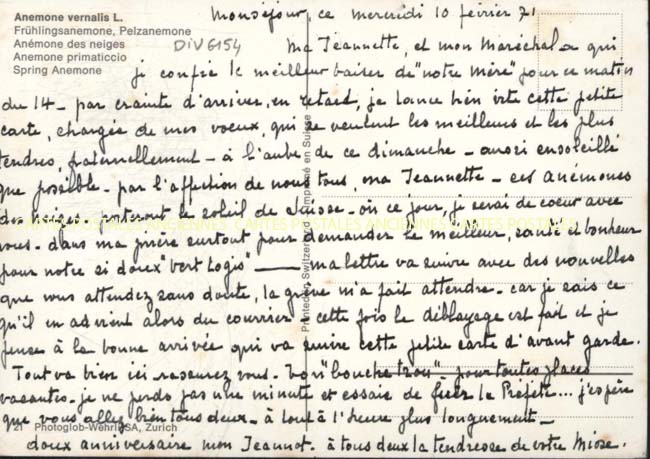 Anemone vernalis L.
Frühlingsanemone, Pelzanemone
Anémone des neiges
Anemone primaticcio
Spring Anemone
DIV6154
Monséjour, ce mercredi 10 février 71
Ma Jeannette, et mon Maréchal à qui
je confie le meilleur baiser de "notre Mère" pour ce matin
du 14 - par crainte d'arriver, en retard, je lance bien vite cette petite
carte, chargée de mes voeux, qui se veulent les meilleurs et les plus
tendres, fraternellement - à l'aube de ce dimanche - aussi ensoleillé
que possible - par l'affection de nous tous, ma Jeannette - ces anémones
des neiges - porteront le soleil de Suisse - où ce jour, je serai de coeur avec
vous - dans ma prière surtout pour demander le meilleur, santé et bonheur
pour notre si doux "vert logis" — ma lettre va suivre avec des nouvelles
que vous attendez sans doute, la grève m'a fait attendre - car je sais ce
qu'il en advient alors du courrier - cette fois le déblayage est fait et je
pense à la bonne arrivée qui va suivre cette petite carte d'avant garde.
Tout va bien ici - rassurez vous - "bouche trou" - pour toutes places
vacantes - je ne perds pas une minute et essaie de fixer le Prophète... j'espère
que vous allez bien tous deux - à tout à l'heure plus longuement -
doux anniversaire mon Jeannot - à tous deux la tendresse de votre
21 Photoglob-Wehrli SA, Zurich
Printed in Switzerland - Imprimé en Suisse
CARTES POSTALES ANCIENNES CARTES POSTALES ANCIENNES CARTES POSTALES